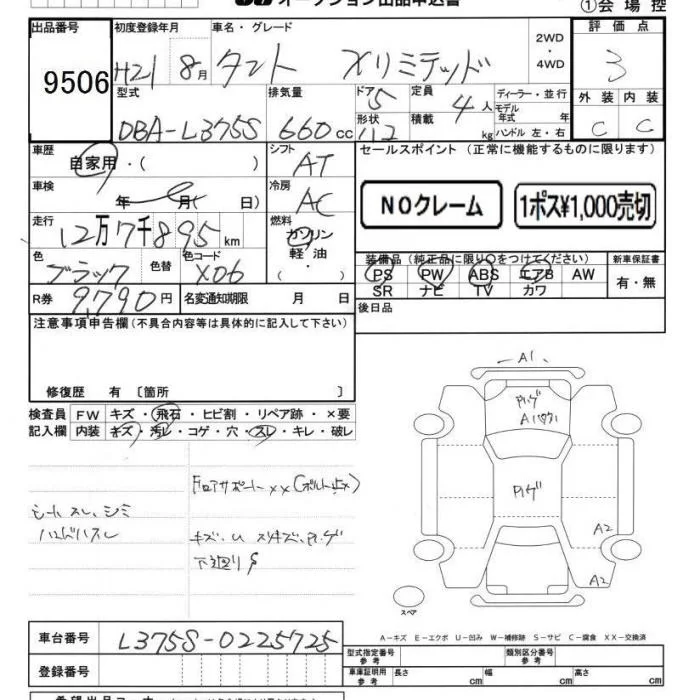 ①会場控
出品番号
9506
初度登録年月
H21 8月
車名・グレード
タント Xリミテッド
2WD
・
4WD
評価点
3
型式
DBA-L375S
排気量
660cc
ドア
5
形状
112
定員
4人
積載
kg
ディーラー・並行
モデル年式 年
ハンドル 左・右
外装 内装
C C
車歴
自家用・( )
シフト
AT
セールスポイント(正常に機能するものに限ります)
車検
年 月( 日)
冷房
AC
NOクレーム
1ポス¥1,000売切
走行
12万7千895km
燃料
ガソリン
軽油
( )
色
ブラック
色替
色コード
X06
装備品(純正品に限り○をつけてください)
新車保証書
PS PW ABS エアB AW
SR ナビ TV カワ
有・無
R券
9,790円
名変通知期限 月 日
後日品
注意事項申告欄(不具合内容等は具体的に記入して下さい)
修復歴 有〔箇所 〕
検査員
記入欄
FW キズ・飛石・ヒビ割・リペア跡・×要
内装 キズ・汚レ・コゲ・穴・スレ・キレ・破レ
シートスレ、シミ
ハンドルスレ
キズ、U
下廻りS
A1
Pレゲ
Pレゲ
A2
A2
スペア
A−キズ E−エクボ U−凹み W−補修跡 S−サビ C−腐食 XX−交換済
車台番号
L375S-0225725
登録番号
型式指定番号
参考
類別区分番号
参考
車庫証明用
参考
長さ cm
幅 cm
高さ cm